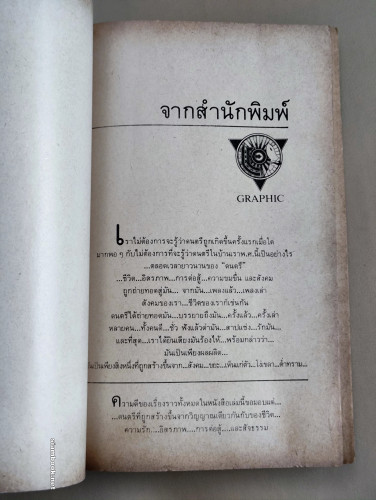 จากสำนักพิมพ์
GRAPHIC
เราไม่ต้องการจะรู้ว่าดนตรีถูกเกิดขึ้นครั้งแรกเมื่อใด
มากพอ ๆ กับไม่ต้องการที่จะรู้ว่าดนตรีในบ้านเราพ.ศ.นี้เป็นอย่างไร
...ตลอดเวลายาวนานของ "ดนตรี"
...ชีวิต...อิสรภาพ...การต่อสู้...ความขมขื่น และสังคม
ถูกถ่ายทอดสู่มัน... จากมัน...เพลงแล้ว...เพลงเล่า
สังคมของเรา...ชีวิตของเราก็เช่นกัน
ดนตรีได้ถ่ายทอดมัน...บรรยายถึงมัน...ครั้งแล้ว...ครั้งเล่า
หลายคน...ทั้งคนดี...ชั่ว ฟังแล้วด่ามัน...สาปแช่ง...รักมัน...
และที่สุด...เราได้ยินเสียงมันร้องไห้...พร้อมกล่าวว่า...
มันเป็นเพียงผลผลิต...
มันเป็นเพียงสิ่งหนึ่งที่ถูกสร้างขึ้นจาก...สังคม...ขยะ...เห็นแก่ตัว...โง่เขลา...ต่ำทราม...
ความดีของเรื่องราวทั้งหมดในหนังสือเล่มนี้ขอมอบแด่...
...ดนตรีที่ถูกสร้างขึ้นจากวิญญาณเดียวกันกับของชีวิต...
ความรัก...อิสรภาพ...การต่อสู้...และสัจธรรม